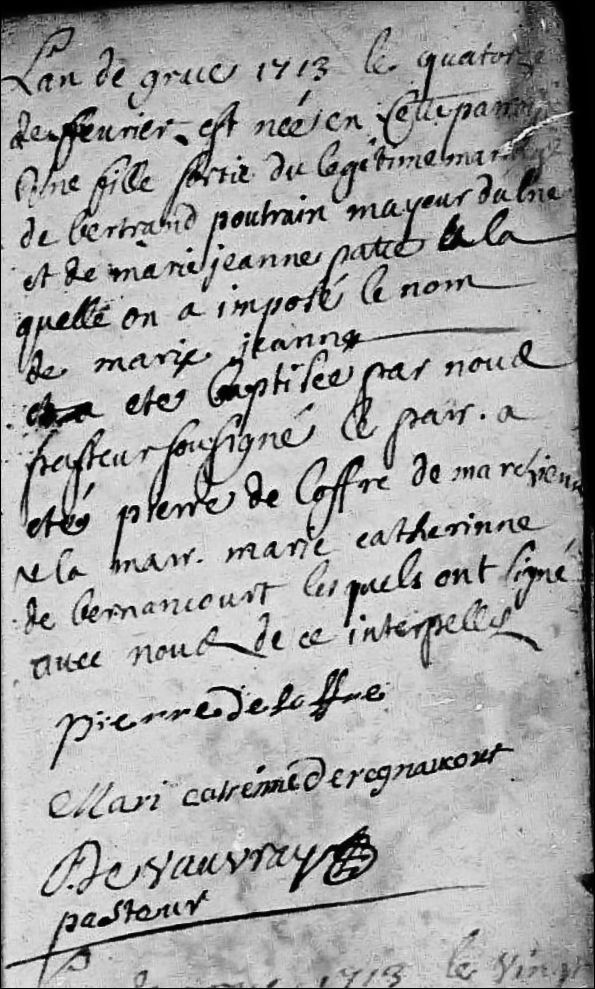 L'an de grace 1713 le quatorze
de feverier est neé en cette parroisse
Une fille sortie du legitime mariage
de bertrand poutrain mayeur du lne
et de marie jeanne patte a la
quelle on a imposé le nom
de marie jeanne
et a eté baptisee par nous
pasteur sousigné le parr. a
eté pierre de loffre de marchienne
et la marr. marie catherinne
de bernancourt lesquels ont signé
avec nous de ce interpellé
pierre de loffre
Mari catrénne De regnaucourt
De vauvray
pasteur
1713 le Vingt